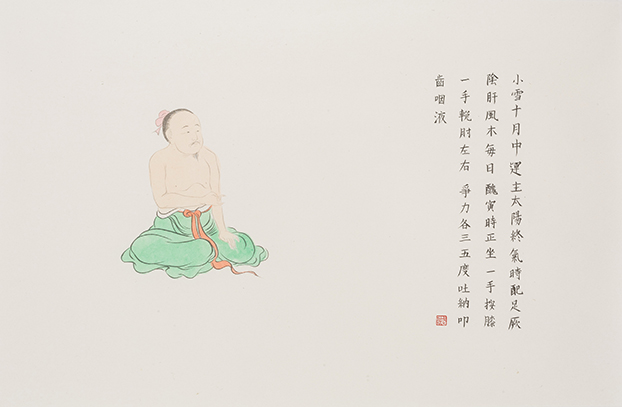 小雪十月中運主太陽終氣時配足厥
陰肝風木每日醜寅時正坐一手按膝
一手輓肘左右爭力各三五度吐納叩
齒咽液